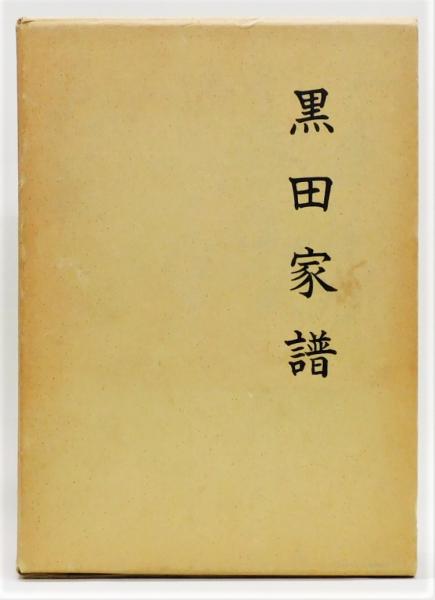 黒田家譜